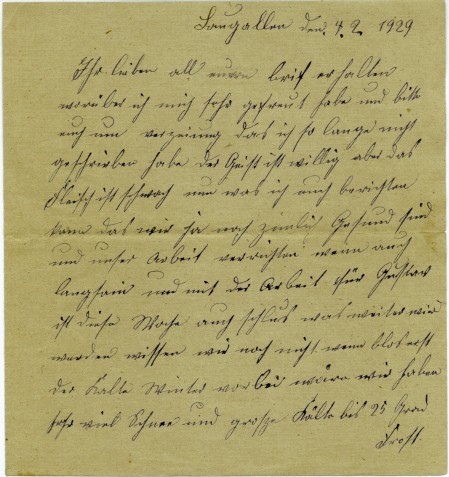 Laugallen den. 4. 2. 1929
Ihr lieben all euren brif erhalten
worüber ich mich sehr gefreut habe und bitte
euch um verzeiung das ich so lange nicht
geschrieben habe der Geist ist willig aber das
Fleisch ist schwach nun was ich euch berichten
kann das wir ja noch zimlich Gesund sind
und unser Arbeit verrichten wenn auch
langsam und mit der Arbeit für Gustav
ist diese Woche auch schlus was weiter wir
werden wissen wir noch nicht wenn blos erst
der Kalte Winter vorbei wäre wir haben
sehr viel Schnee und grosze Kälte bis 25 Grad
Frost.